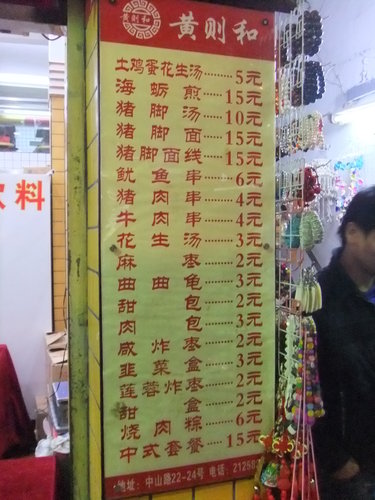 黄则和
黄则和
土鸡蛋花生汤……5元
海蛎煎……15元
猪脚汤……10元
猪脚面……15元
猪脚面线……15元
鱿鱼串……6元
猪肉串……4元
牛肉串……4元
花生汤……3元
麻枣……2元
曲曲龟……2元
甜包……2元
肉包……3元
咸炸枣……2元
韭菜盒……3元
莲蓉炸枣……2元
甜盒……2元
烧肉粽……6元
中式套餐……15元
地址：中山路22-24号 电话：2125
饮料